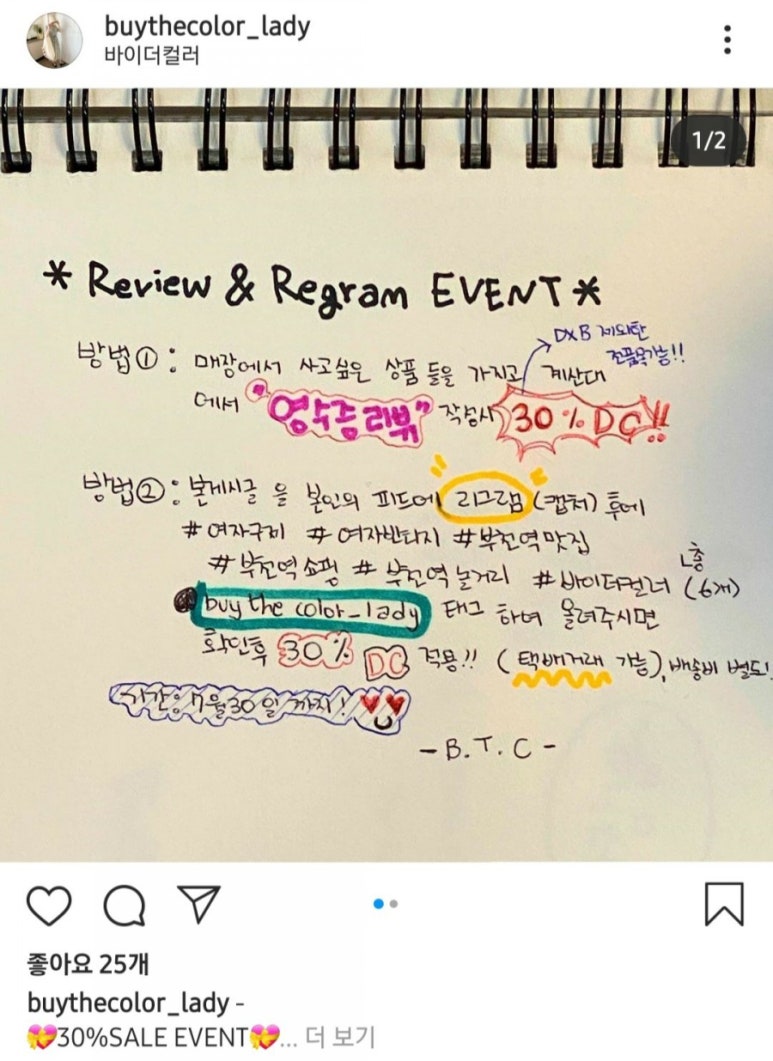 buythecolor_lady
바이더컬러
1/2
* Review & Regram EVENT *
DXB 제외한
전품목가능!!
방법①: 매장에서 사고싶은 상품 들을 가지고 계산대
에서 "영수증 리뷰" 작성시 30% DC!!
방법②: 본게시글 을 본인의 피드에 리그램 (캡처) 후에
#여자구제 #여자빈티지 #부전역맛집
#부전역쇼핑 #부전역놀거리 #바이더컬러 (6개)
└총
@buy the color_lady 태그 하여 올려주시면
확인후 30% DC 적용!! (택배거래 가능), 배송비 별도!
기간:7월30일 까지!
-B.T.C-
좋아요 25개
buythecolor_lady -
💝30%SALE EVENT💝... 더 보기